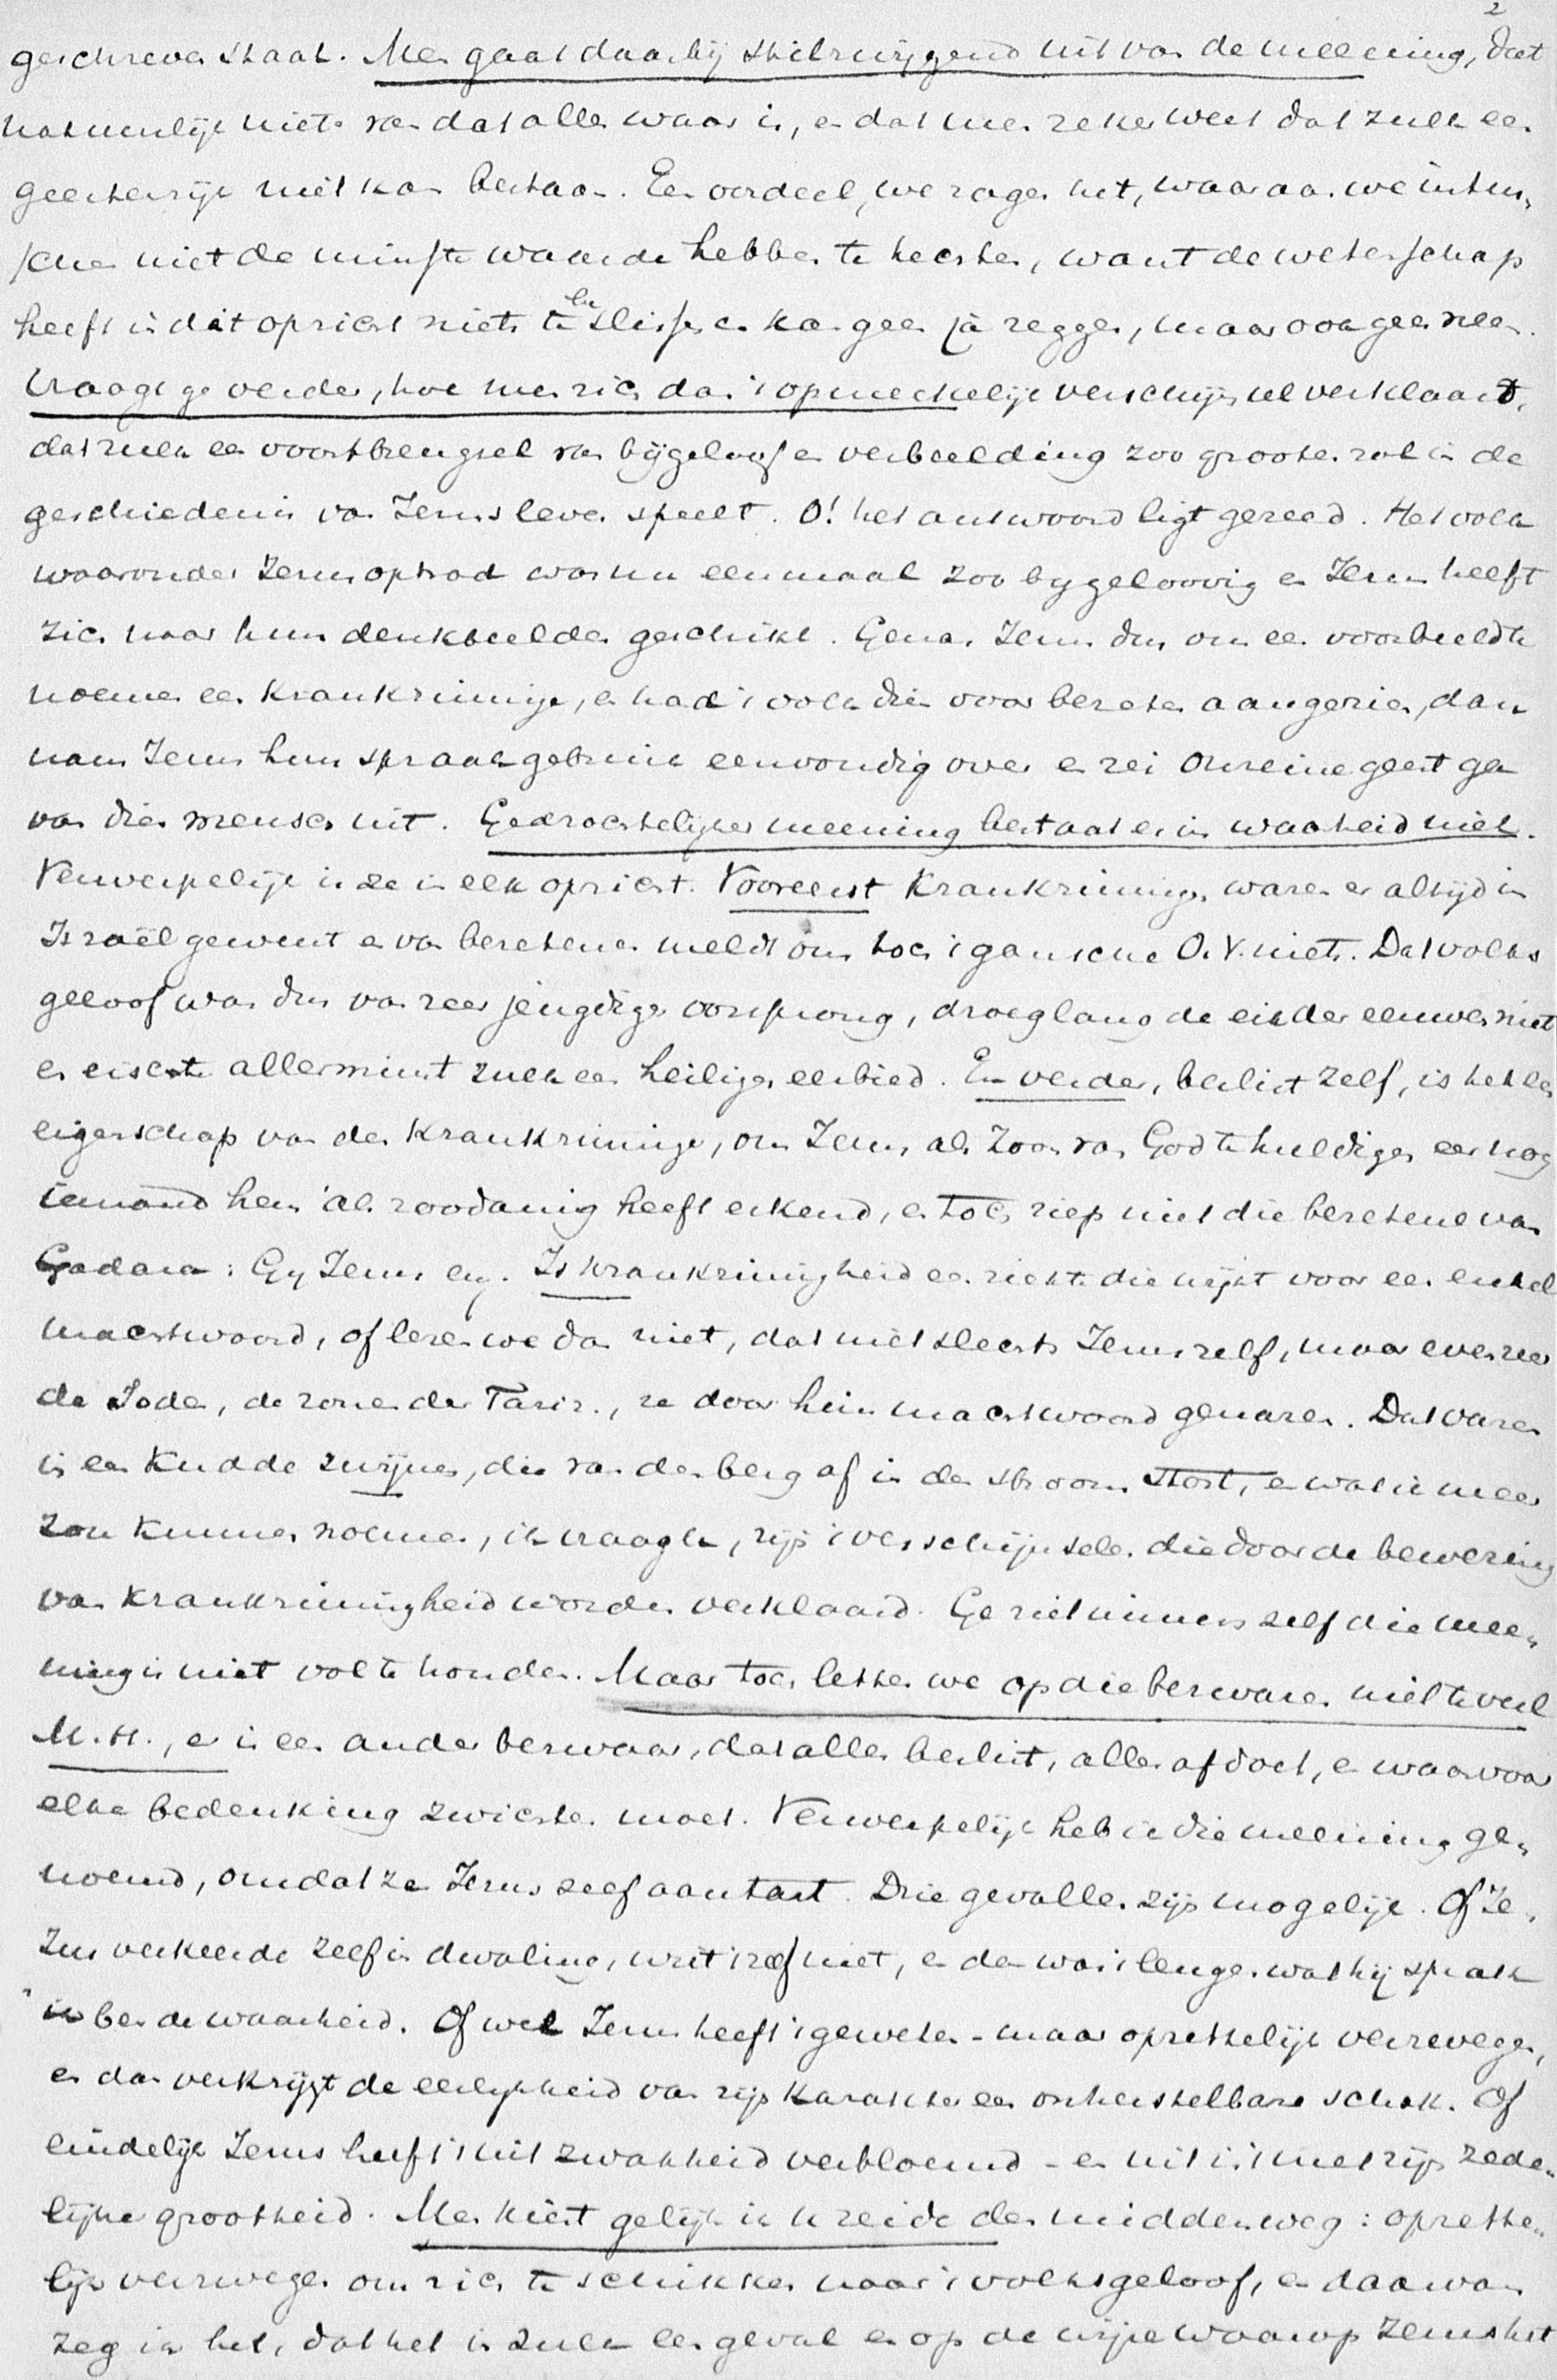 2
geschreven staat. Men gaat daarbij stilzwijgend uit van de meening, dat
natuurlijk niets van dat alles waar is, en dat men zeker weet dat zulk een
geestenrijk niet kan bestaan. Een oordeel, we zagen het, waaraan we intus,
schen niet de minste waarde hebben te hechten, want de wetenschap
heeft in dit opzicht niets te beslissen en kan geen ja zeggen, maar ook geen neen.
Vraagt ge verder, hoe men zich dan 't opmerkelijk verschijnsel verklaart,
dat zulk een voortbrengsel van bijgeloof en verbeelding zoo grooten rol in de
geschiedenis van Jezus leven speelt. O! het antwoord ligt gereed. Het volk
waaronder Jezus optrad was nu eenmaal zoo bijgeloovig en Jezus heeft
zich naar hun denkbeelden geschikt. Genas Jezus dus om een voorbeeld te
noemen een krankzinnige, en had 't volk dien voor bezeten aangezien, dan
nam Jezus hun spraakgebruik eenvoudig over en zei Onreine geest ga
van dien mensch uit. Gedrochtelijker meening bestaat er in waarheid niet.
Verwerpelijk is ze in elk opzicht. Vooreerst Krankzinnigen waren er altijd in
Israël geweest en van bezetenen meldt ons toch 't gansche O.V. niets. Dat volks
geloof was dus van zeer jeugdigen oorsprong, droeg lang de eik der eeuwen niet
en eischte allerminst zulk een heiligen eerbied. En verder, beslist zelf, is het een
eigenschap van den krankzinnige, om Jezus als Zoon van God te huldigen eer nog
iemand hem als zoodanig heeft erkend, en toch riep niet die bezetene van
Gadara: Gij Jezus enz. Is krankzinnigheid een ziekte die wijkt voor een enkel
machtwoord, of lezen we dan niet, dat niet slechts Jezus zelf, maar evenzeer
de Joden, de zonen der Fariz., ze door hun machtwoord genazen. Dat varen
in een kudde zwijnen, die van den berg af in den stroom stort, en wat ik meer
zou kunnen noemen, ik vraag u, zijn 't verschijnselen die door de bewering
van krankzinnigheid worden verklaard. Ge ziet immers zelf die mee,
ning is niet vol te houden. Maar toch letten we op die bezwaren niet te veel
M.H., er is een ander bezwaar, dat alles beslist, alles afdoet, en waarvoor
elke bedenking zwichten moet. Verwerpelijk heb ik die meening ge,
noemd, omdat ze Jezus zelf aantast. Drie gevallen zijn mogelijk. Of Je,
zus verkeerde zelf in dwaling, wist 't zelf niet, en dan was 't leugen wat hij sprak
"ik ben de waarheid. Of wel Jezus heeft 't geweten - maar opzettelijk verzwegen,
en dan verkrijgt de eerlijkheid van zijn karakter een onherstelbare schok. Of
eindelijk Jezus heeft 't uit zwakheid verbloemd - en uit is 't met zijn zede,
lijke grootheid. Men kiest gelijk ik u zeide den middenweg: opzette,
lijk verzwegen om zich te schikken naar 't volksgeloof, en daarvan
zeg ik het, dat het in zulk een geval en op de wijze waarop Jezus het